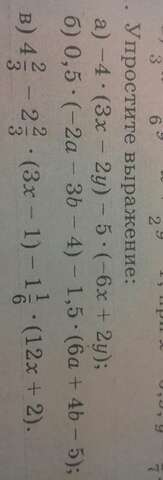 . Упростите выражение:
а) −4 · (3x − 2y) − 5 · (−6x + 2y);
б) 0,5 · (−2a − 3b − 4) − 1,5 · (6a + 4b − 5);
в) 4 2/3 − 2 2/3 · (3x − 1) − 1 1/6 · (12x + 2).